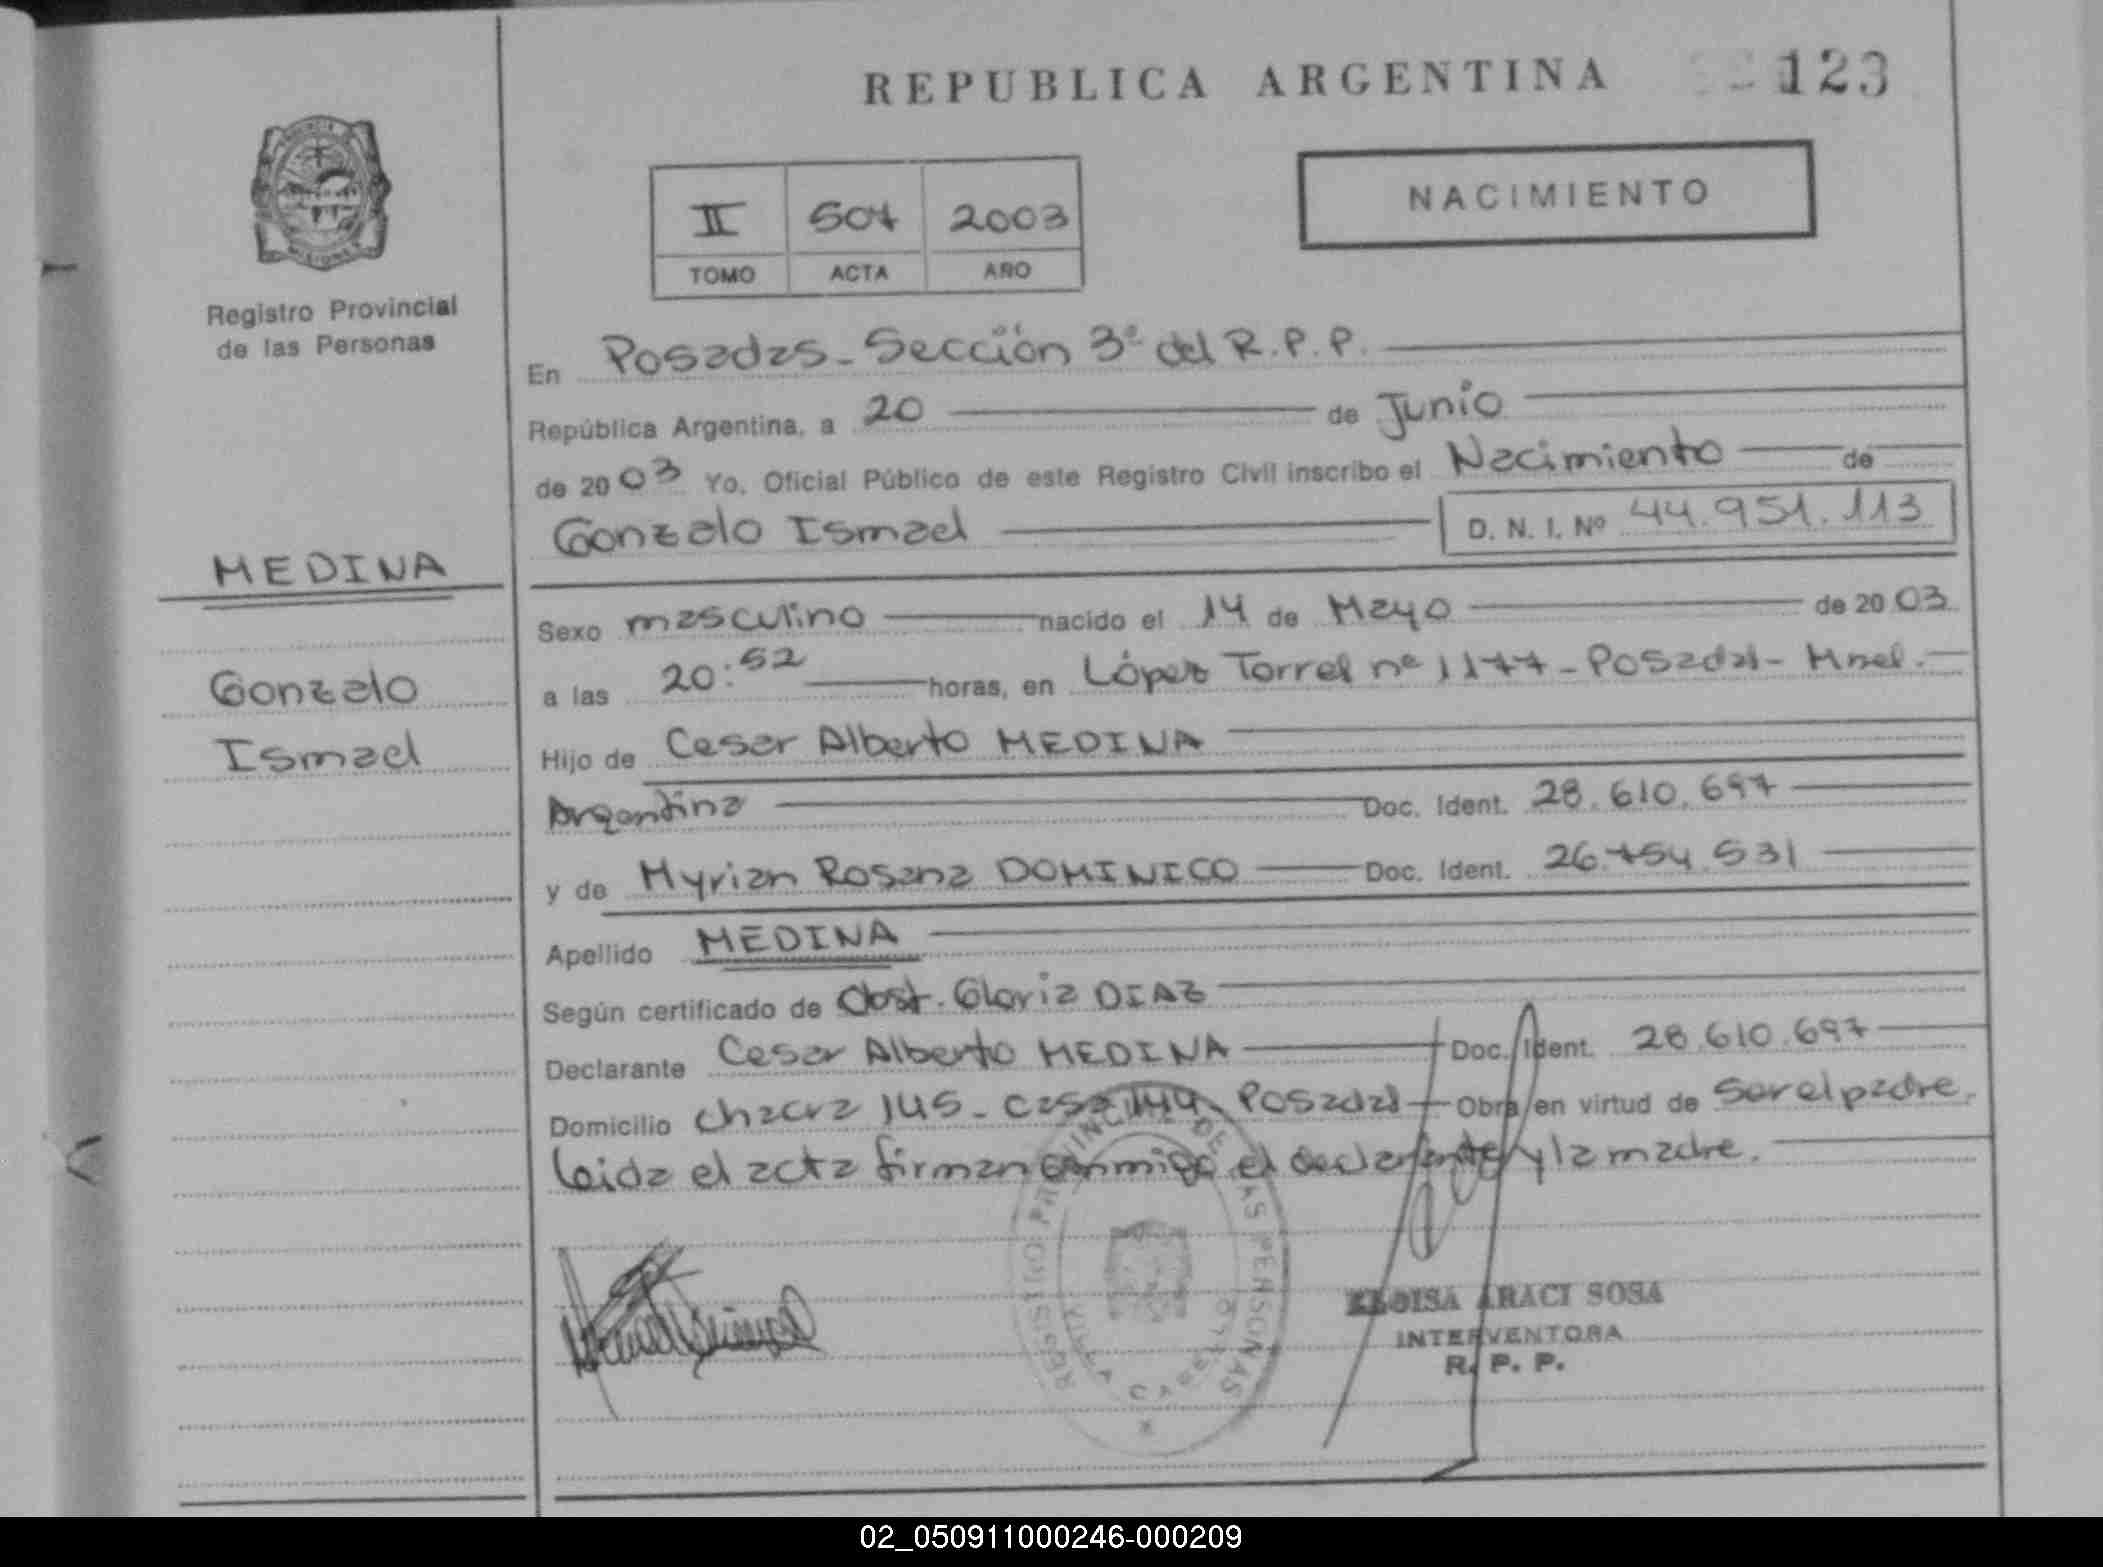 REPUBLICA ARGENTINA 123
NACIMIENTO
II 507 2003
TOMO ACTA AÑO
Registro Provincial
de las Personas
En Posadas - Sección 3º del R.P.P.
República Argentina, a 20 de Junio
de 2003 Yo, Oficial Público de este Registro Civil inscribo el Nacimiento de
Gonzalo Ismael D. N. I. Nº 44.951.113
MEDINA
Gonzalo
Ismael
Sexo masculino nacido el 14 de Mayo de 2003
a las 20:52 horas, en López Torres nº 1177 - Posadas - Mnes.
Hijo de Cesar Alberto MEDINA
Argentina Doc. Ident. 28.610.697
y de Myrian Rosana DOMINICO Doc. Ident. 26.754.531
Apellido MEDINA
Según certificado de Obst. Gloria DIAZ
Declarante Cesar Alberto MEDINA Doc. Ident. 28.610.697
Domicilio chacra 145 - casa 144 - Posadas Obra en virtud de ser el padre.
Leida el acta firman conmigo el declarante y la madre.
REGISTRO PROVINCIAL DE LAS PERSONAS
VILLA CABELLO
ELOISA ARACI SOSA
INTERVENTORA
R. P. P.
02_050911000246-000209